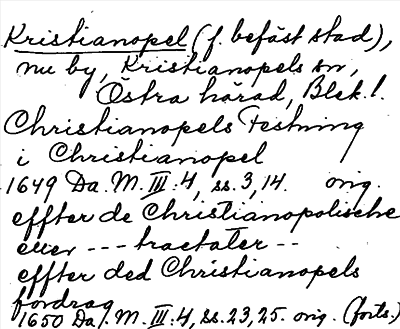 Kristianopel (f. befäst stad),
nu by, Kristianopels sn,
Östra härad, Blek.l.
Christianopels Festning
i Christianopel
1649 Da. M. III:4, ss. 3, 14. orig.
effter de Christianopolische
eller --- tractater --
effter ded Christianopels
fordrag
1650 Da/. M. III:4, ss. 23, 25. orig. (forts.)